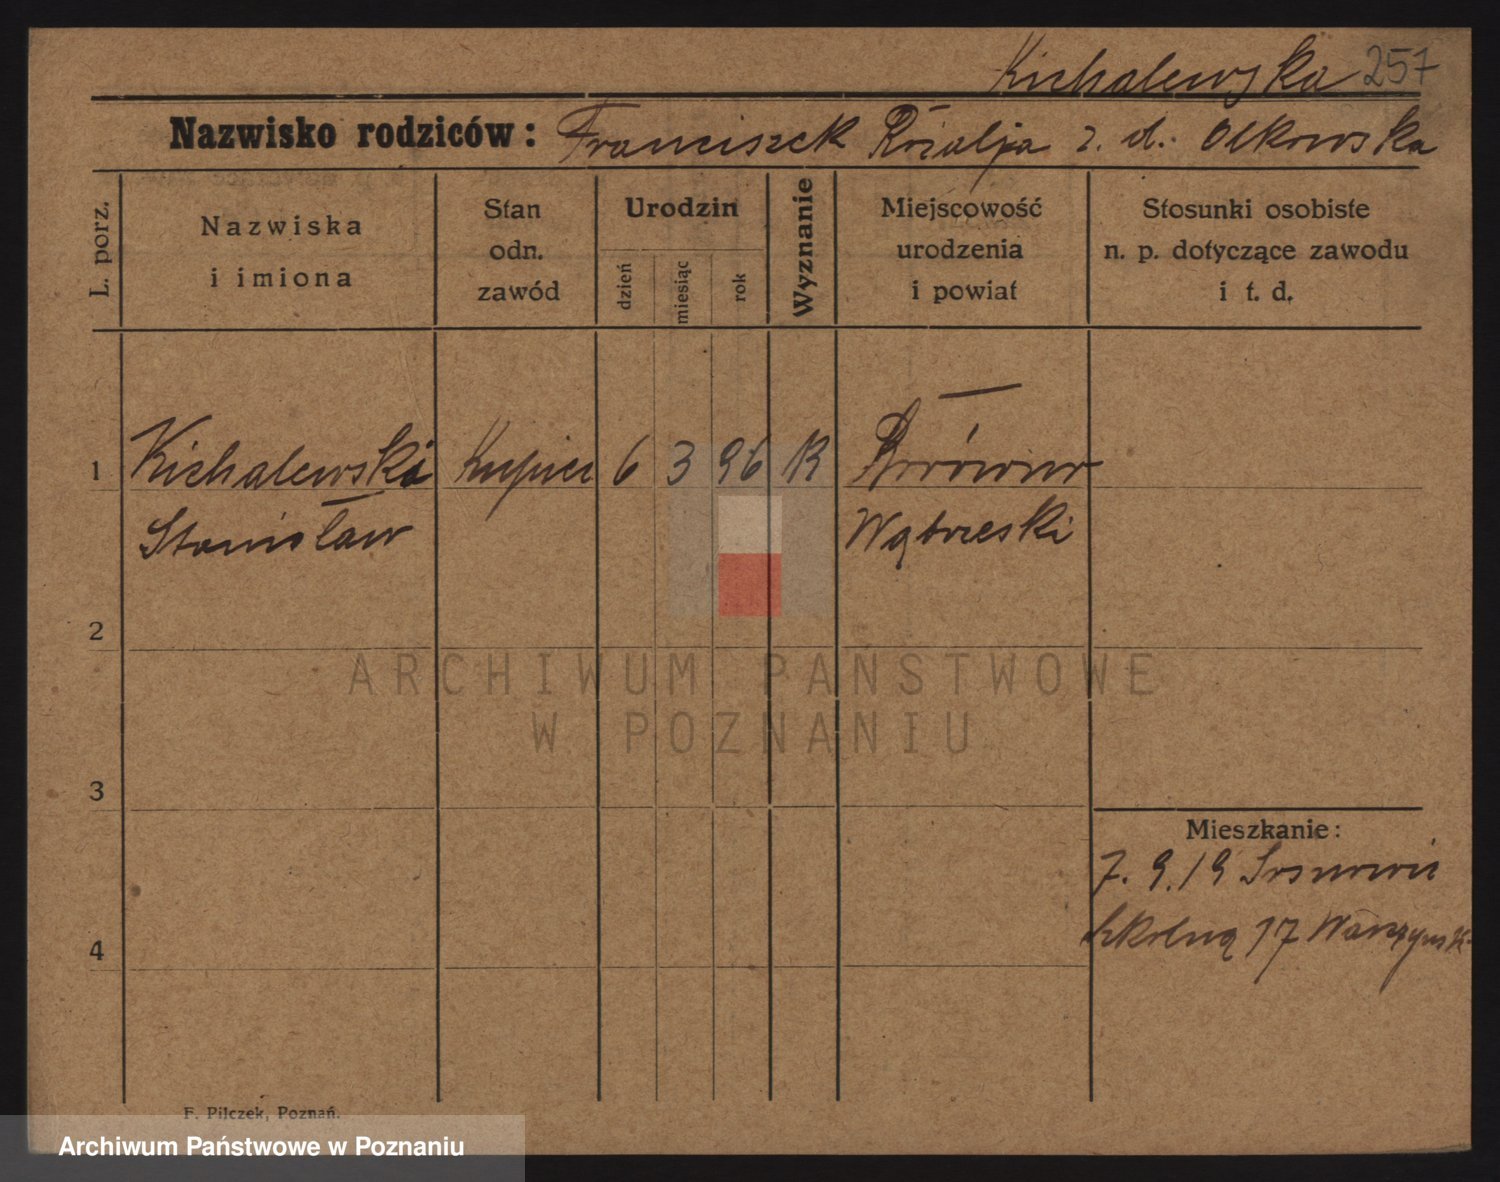 Kichalewska 257
Nazwisko rodziców: Franciszek Rozalja z. d. Olkowska
L. porz.
Nazwiska
i imiona
Stan
odn.
zawód
Urodzin
dzień
miesiąc
rok
Wyznanie
Miejscowość
urodzenia
i powiat
Stosunki osobiste
n. p. dotyczące zawodu
i t. d.
1 Kichalewski Kupiec 6 3 96 R
Stanisław Wąbrzeski
2
3
4
Mieszkanie:
7. 9. 19 Sosnowiec
17
F. Pilczek, Poznań.
ARCHIWUM PAŃSTWOWE
W POZNANIU
Archiwum Państwowe w Poznaniu